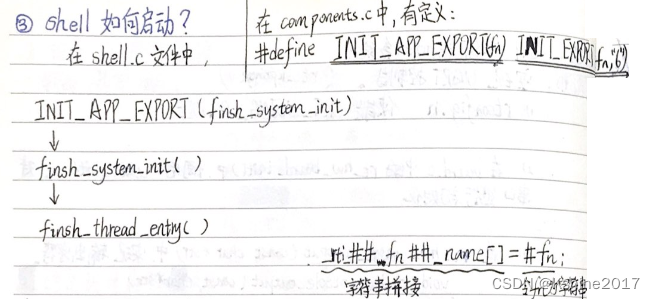 ③ shell 如何启动?
在 shell.c 文件中,
在 components.c中,有定义:
#define INIT_APP_EXPORT(fn) INIT_EXPORT(fn,"6")
INIT_APP_EXPORT (finsh_system_init)
↓
finsh_system_init( )
↓
finsh_thread_entry( )
_rti_##_fn##_name[] = #fn;
字符串拼接
CSDN
2017